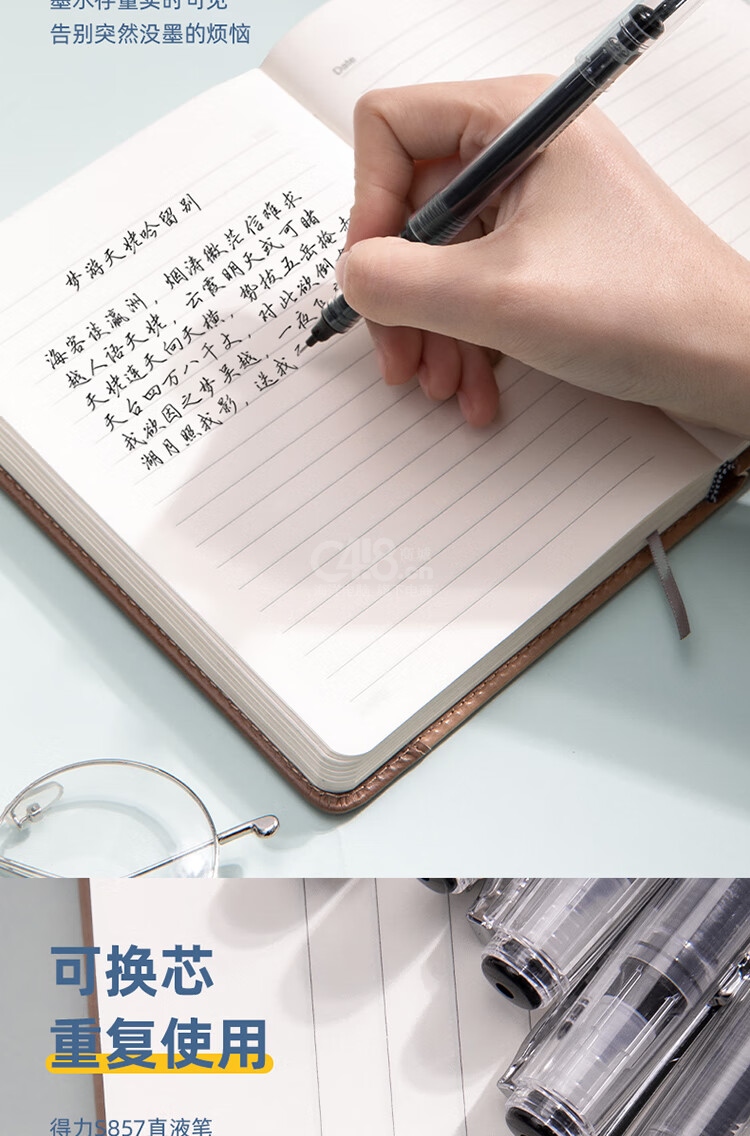 墨水存量实时可见
告别突然没墨的烦恼
Date
梦游天姥吟留别
海客谈瀛洲，烟涛微茫信难求
越人语天姥，云霞明灭或可睹
天姥连天向天横，势拔五岳掩赤
天台四万八千丈，对此欲倒
我欲因之梦吴越，一夜飞
湖月照我影，送我
C418.cn
可换芯
重复使用
得力S857直液笔